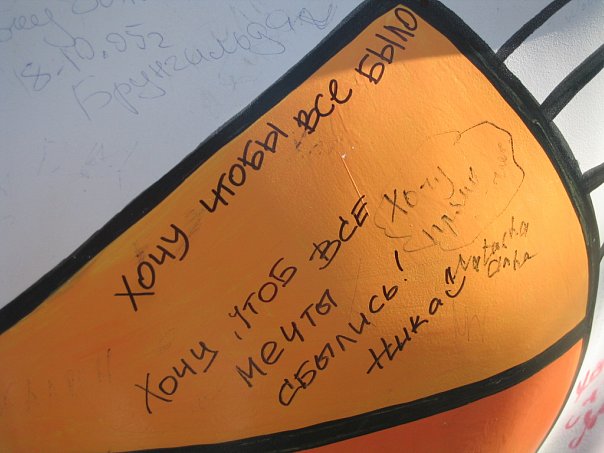 18.10.05г
Брунгильда
Хочу чтобы все было
Хочу, чтоб все
мечты
сбылись!
Ника
Хочу
Natasha